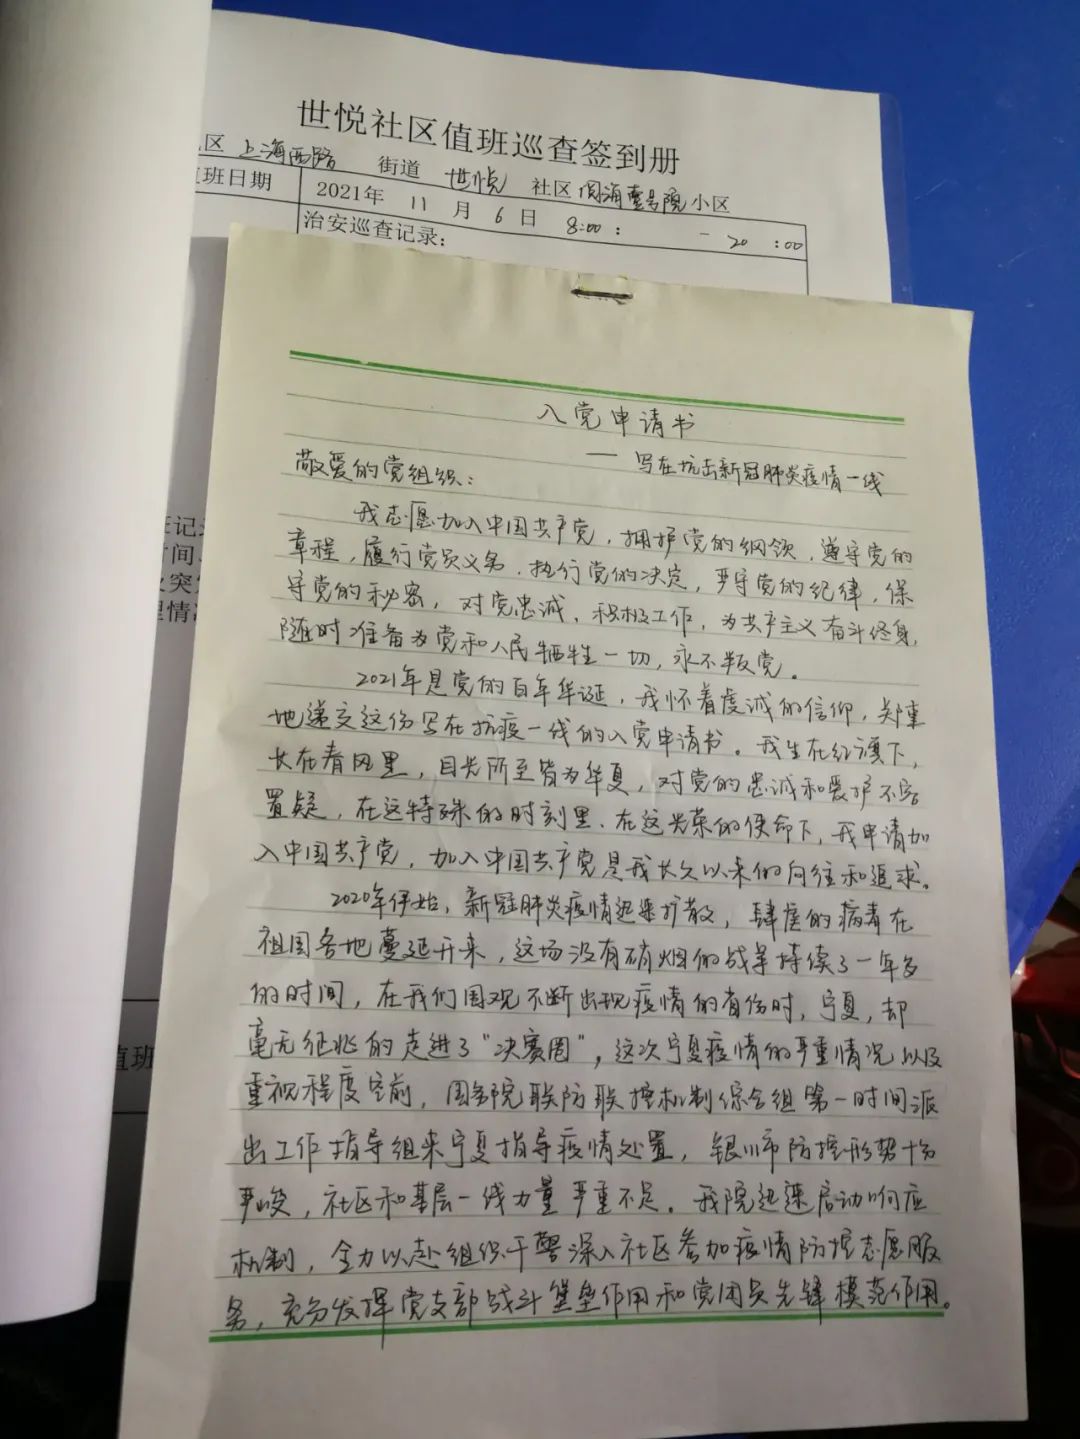 世悦社区值班巡查签到册
区 上海西路 街道 世悦 社区 阅海壹号院 小区
值班日期 2021年 11 月 6 日 8:00 : — 20 :00
治安巡查记录：
入党申请书
— 写在抗击新冠肺炎疫情一线
敬爱的党组织：
我志愿加入中国共产党，拥护党的纲领，遵守党的
章程，履行党员义务，执行党的决定，严守党的纪律，保
守党的秘密，对党忠诚，积极工作，为共产主义奋斗终身，
随时准备为党和人民牺牲一切，永不叛党。
2021年是党的百年华诞，我怀着虔诚的信仰，郑重
地递交这份写在抗疫一线的入党申请书。我生在红旗下，
长在春风里，目光所至皆为华夏，对党的忠诚和爱护不容
置疑，在这特殊的时刻里、在这光荣的使命下，我申请加
入中国共产党，加入中国共产党是我长久以来的向往和追求。
2020年伊始，新冠肺炎疫情迅速扩散，肆虐的病毒在
祖国各地蔓延开来，这场没有硝烟的战争持续了一年多
的时间，在我们围观不断出现疫情的省份时，宁夏，却
毫无征兆的走进了“决赛圈”，这次宁夏疫情的严重情况以及
重视程度空前，国务院联防联控机制综合组第一时间派
出工作指导组来宁夏指导疫情处置，银川市防控形势十分
严峻，社区和基层一线力量严重不足。我院迅速启动响应
机制，全力以赴组织干警深入社区参加疫情防控志愿服
务，充分发挥党支部战斗堡垒作用和党团员先锋模范作用。
班记
时间、
突
理情
值班